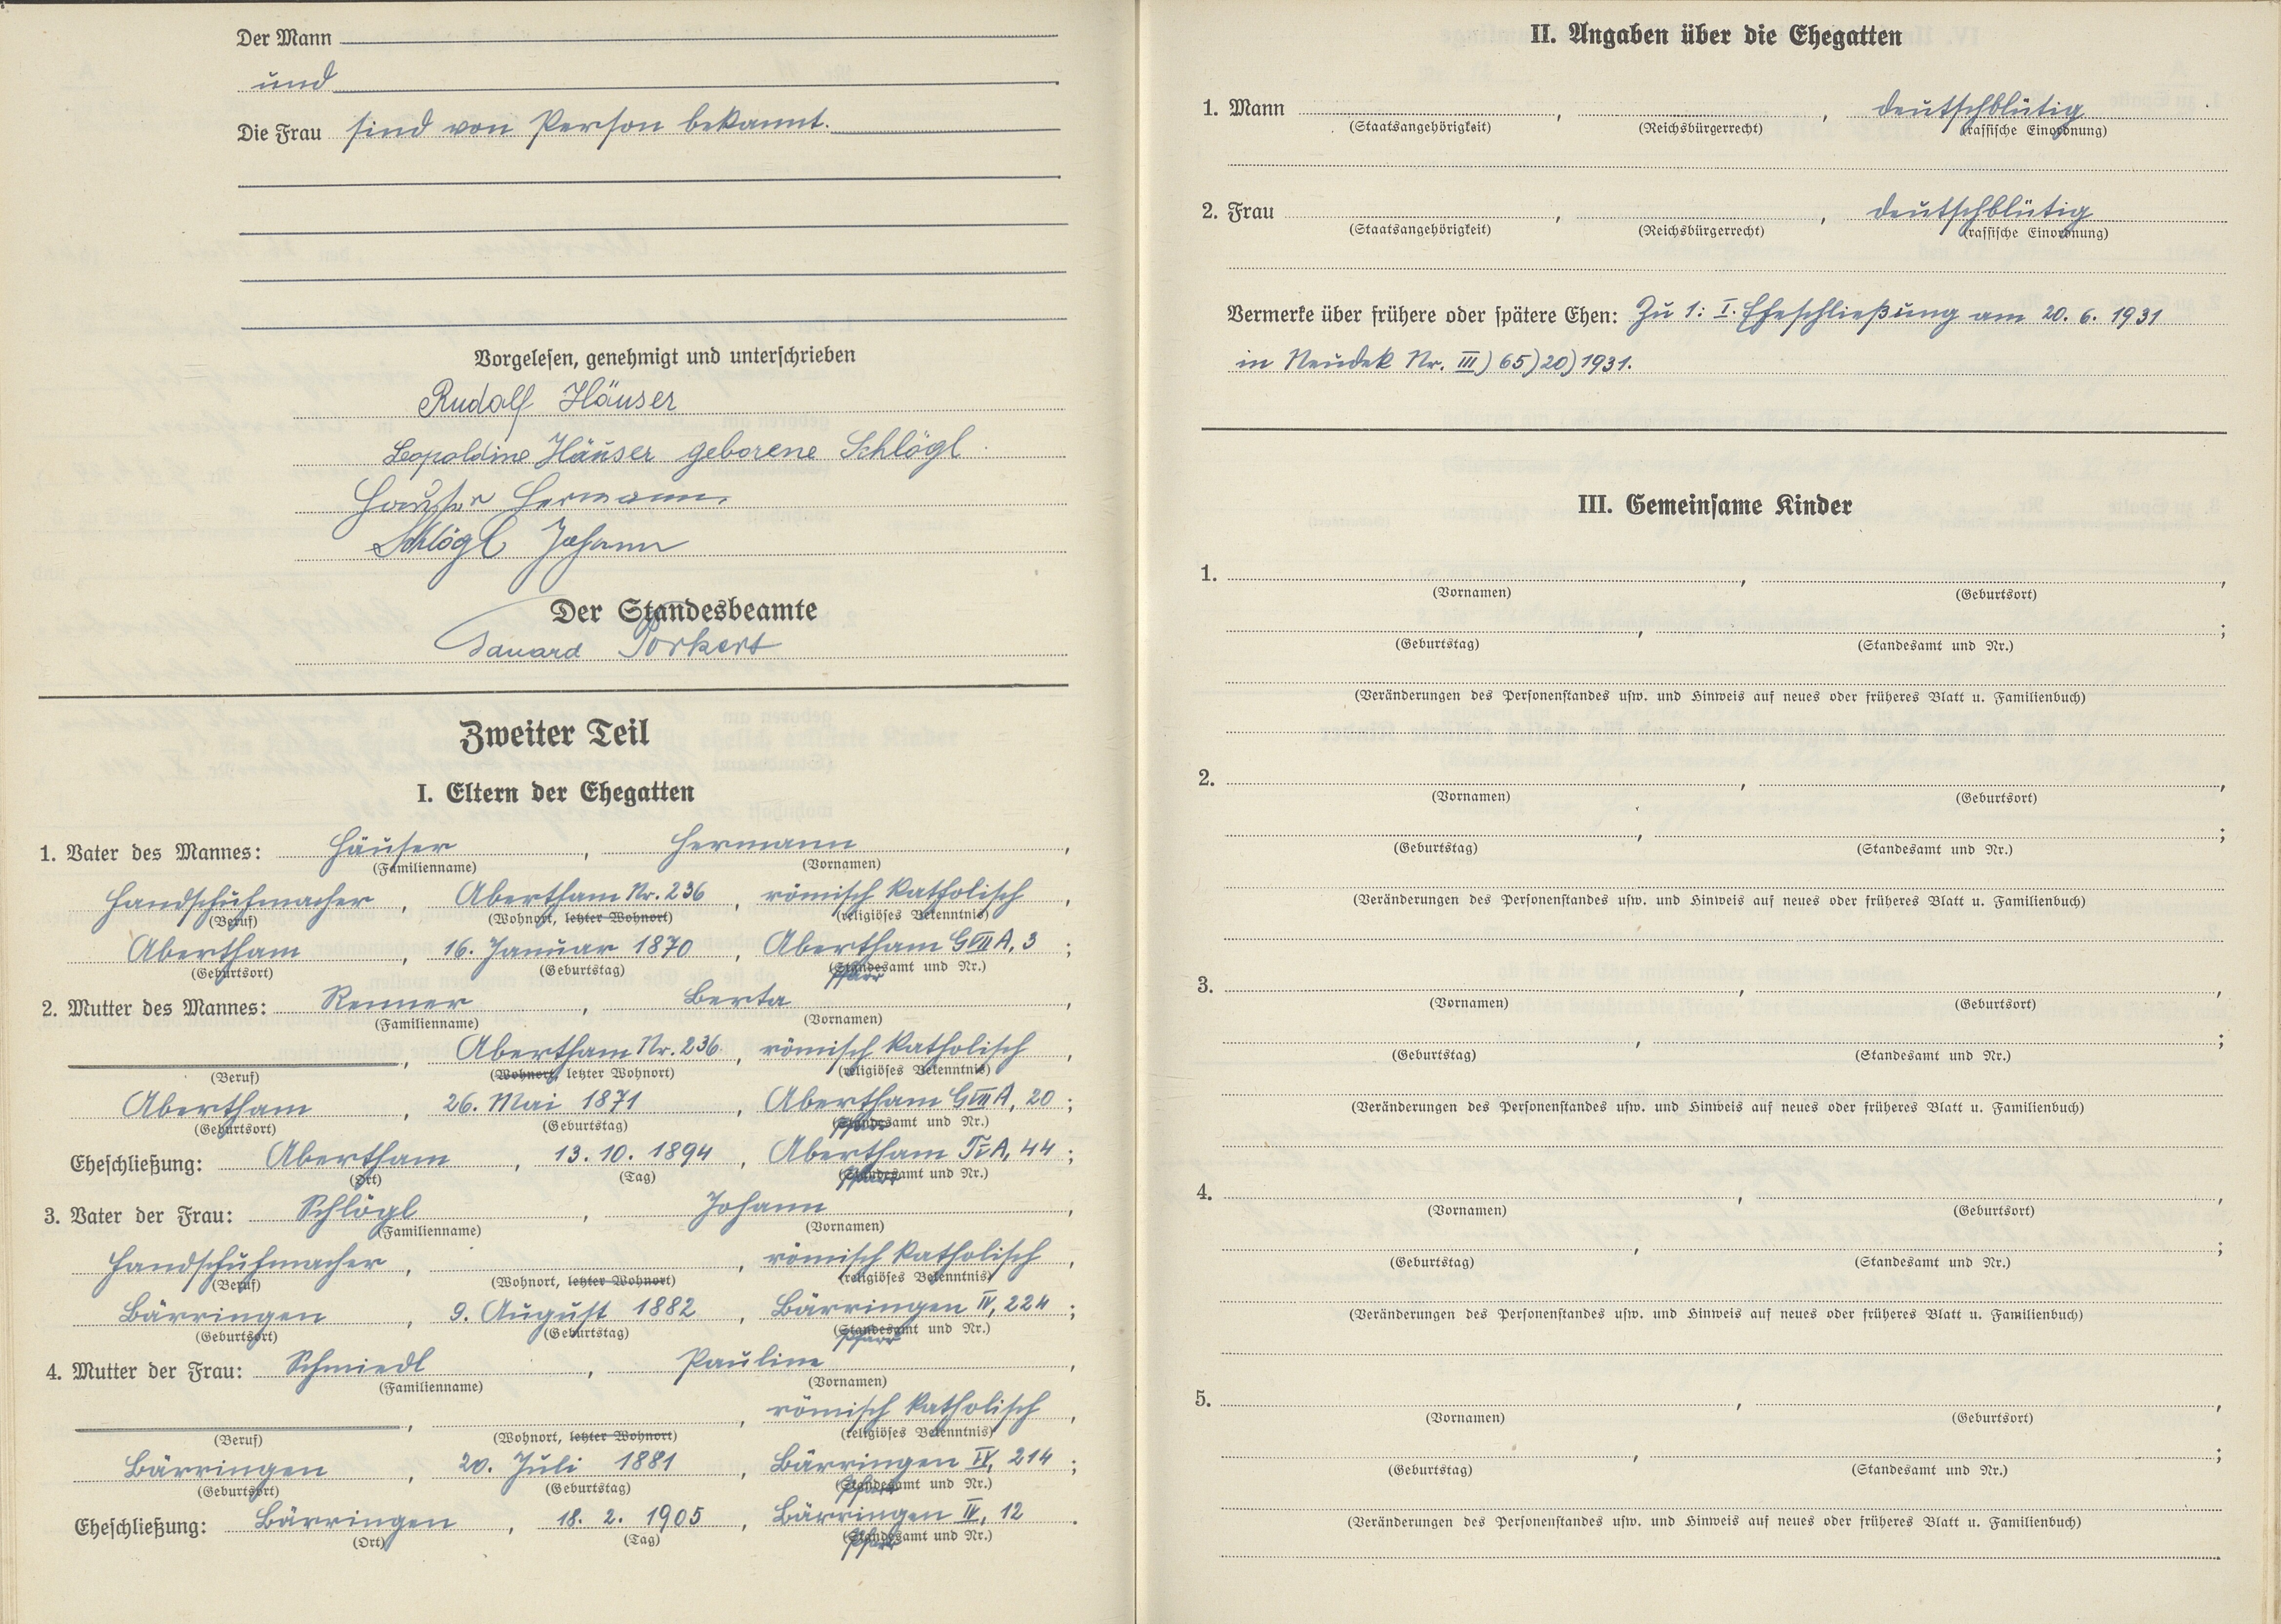 Der Mann
und
Die Frau sind von Person bekannt.
Vorgelesen, genehmigt und unterschrieben
Rudolf Häuser
Leopoldine Häuser geborene Schlögl
Häuser Hermann
Schlögl Johann
Der Standesbeamte
Eduard Porkert
Zweiter Teil
I. Eltern der Ehegatten
1. Vater des Mannes: Häuser, Hermann,
(Familienname) (Vornamen)
Handschuhmacher, Abertham Nr. 236, römisch katholisch,
(Beruf) (Wohnort, letzter Wohnort) (religiöses Bekenntnis)
Abertham, 16. Januar 1870, Abertham G VII A, 3;
(Geburtsort) (Geburtstag) (Standesamt und Nr.)
Pfarr
2. Mutter des Mannes: Renner, Berta,
(Familienname) (Vornamen)
, Abertham Nr. 236, römisch katholisch,
(Beruf) (Wohnort, letzter Wohnort) (religiöses Bekenntnis)
Abertham, 26. Mai 1871, Abertham G VII A, 20;
(Geburtsort) (Geburtstag) (Standesamt und Nr.)
Pfarr
Eheschließung: Abertham, 13. 10. 1894, Abertham A, 44;
(Ort) (Tag) (Standesamt und Nr.)
Pfarr
3. Vater der Frau: Schlögl, Johann,
(Familienname) (Vornamen)
Handschuhmacher, , römisch katholisch,
(Beruf) (Wohnort, letzter Wohnort) (religiöses Bekenntnis)
Bärringen, 9. August 1882, Bärringen IV, 224;
(Geburtsort) (Geburtstag) (Standesamt und Nr.)
Pfarr
4. Mutter der Frau: Schmiedl, Pauline,
(Familienname) (Vornamen)
, , römisch katholisch,
(Beruf) (Wohnort, letzter Wohnort) (religiöses Bekenntnis)
Bärringen, 20. Juli 1881, Bärringen IV, 214;
(Geburtsort) (Geburtstag) (Standesamt und Nr.)
Pfarr
Eheschließung: Bärringen, 18. 2. 1905, Bärringen IV, 12.
(Ort) (Tag) (Standesamt und Nr.)
Pfarr
II. Angaben über die Ehegatten
1. Mann , , deutschblütig
(Staatsangehörigkeit) (Reichsbürgerrecht) (rassische Einordnung)
2. Frau , , deutschblütig
(Staatsangehörigkeit) (Reichsbürgerrecht) (rassische Einordnung)
Vermerke über frühere oder spätere Ehen: Zu 1: I. Eheschließung am 20. 6. 1931
in Neudek Nr. III) 65) 20) 1931.
III. Gemeinsame Kinder
1. , ,
(Vornamen) (Geburtsort)
, ;
(Geburtstag) (Standesamt und Nr.)
(Veränderungen des Personenstandes usw. und Hinweis auf neues oder früheres Blatt u. Familienbuch)
2. , ,
(Vornamen) (Geburtsort)
, ;
(Geburtstag) (Standesamt und Nr.)
(Veränderungen des Personenstandes usw. und Hinweis auf neues oder früheres Blatt u. Familienbuch)
3. , ,
(Vornamen) (Geburtsort)
, ;
(Geburtstag) (Standesamt und Nr.)
(Veränderungen des Personenstandes usw. und Hinweis auf neues oder früheres Blatt u. Familienbuch)
4. , ,
(Vornamen) (Geburtsort)
, ;
(Geburtstag) (Standesamt und Nr.)
(Veränderungen des Personenstandes usw. und Hinweis auf neues oder früheres Blatt u. Familienbuch)
5. , ,
(Vornamen) (Geburtsort)
, ;
(Geburtstag) (Standesamt und Nr.)
(Veränderungen des Personenstandes usw. und Hinweis auf neues oder früheres Blatt u. Familienbuch)